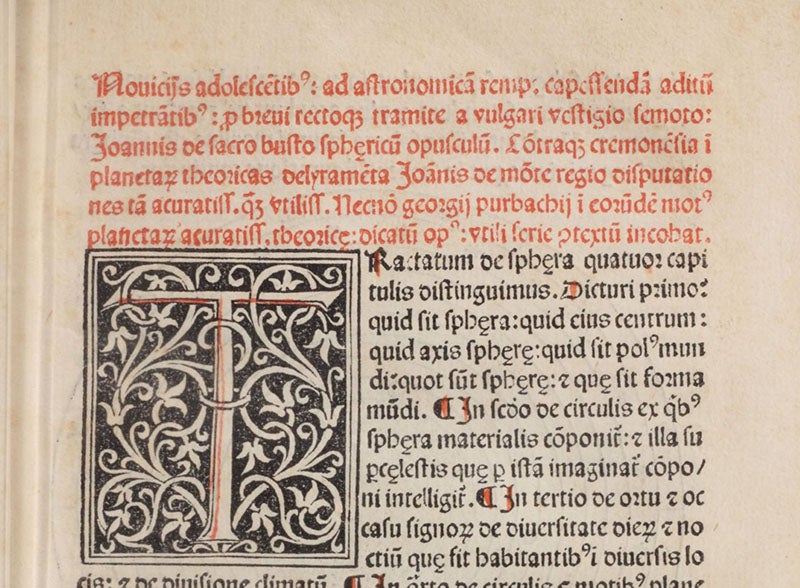 Nouicijs adolescētibꝰ: ad astronomicā remp: capessendā aditū
impetrātibꝰ: ꝓ breui rectoqꝫ tramite a vulgari vestigio semoto:
Joannis de sacro busto sphęricū opusculū. Cōtraqꝫ cremonēsia ī
planetaꝝ theoricas delyramēta Joānis de mōte regio disputatio
nes tā acuratiss. qꝫ̄ vtiliss. Necnō georgij purbachij ī eorūdē motꝰ
planetaꝝ acuratiss. theoricę: dicatū opꝰ: vtili serie ꝯtextū incohat.
TRactatum de sphęra quatuor capi
tulis distinguimus. Dicturi primo:
quid sit sphęra: quid eius centrum:
quid axis sphęrę: quid sit polꝰ mun
di: quot sūt sphęrę: ⁊ quę sit forma
mūdi. ¶ In scdo de circulis ex qͥbꝰ
sphęra materialis cōponit̄: ⁊ illa su
ꝑcęlestis que ꝑ istā imaginat̄ cōpo/
ni intelligit̄. ¶ In tertio de ortu ⁊ oc
casu signoꝝ de diuersitate dieꝝ ⁊ no
ctiū quę fit habitantibꝰ ī diuersis lo
cis: ⁊ de diuisione climatū. ¶ In q̄rto de circulis ⁊ motibꝰ plane